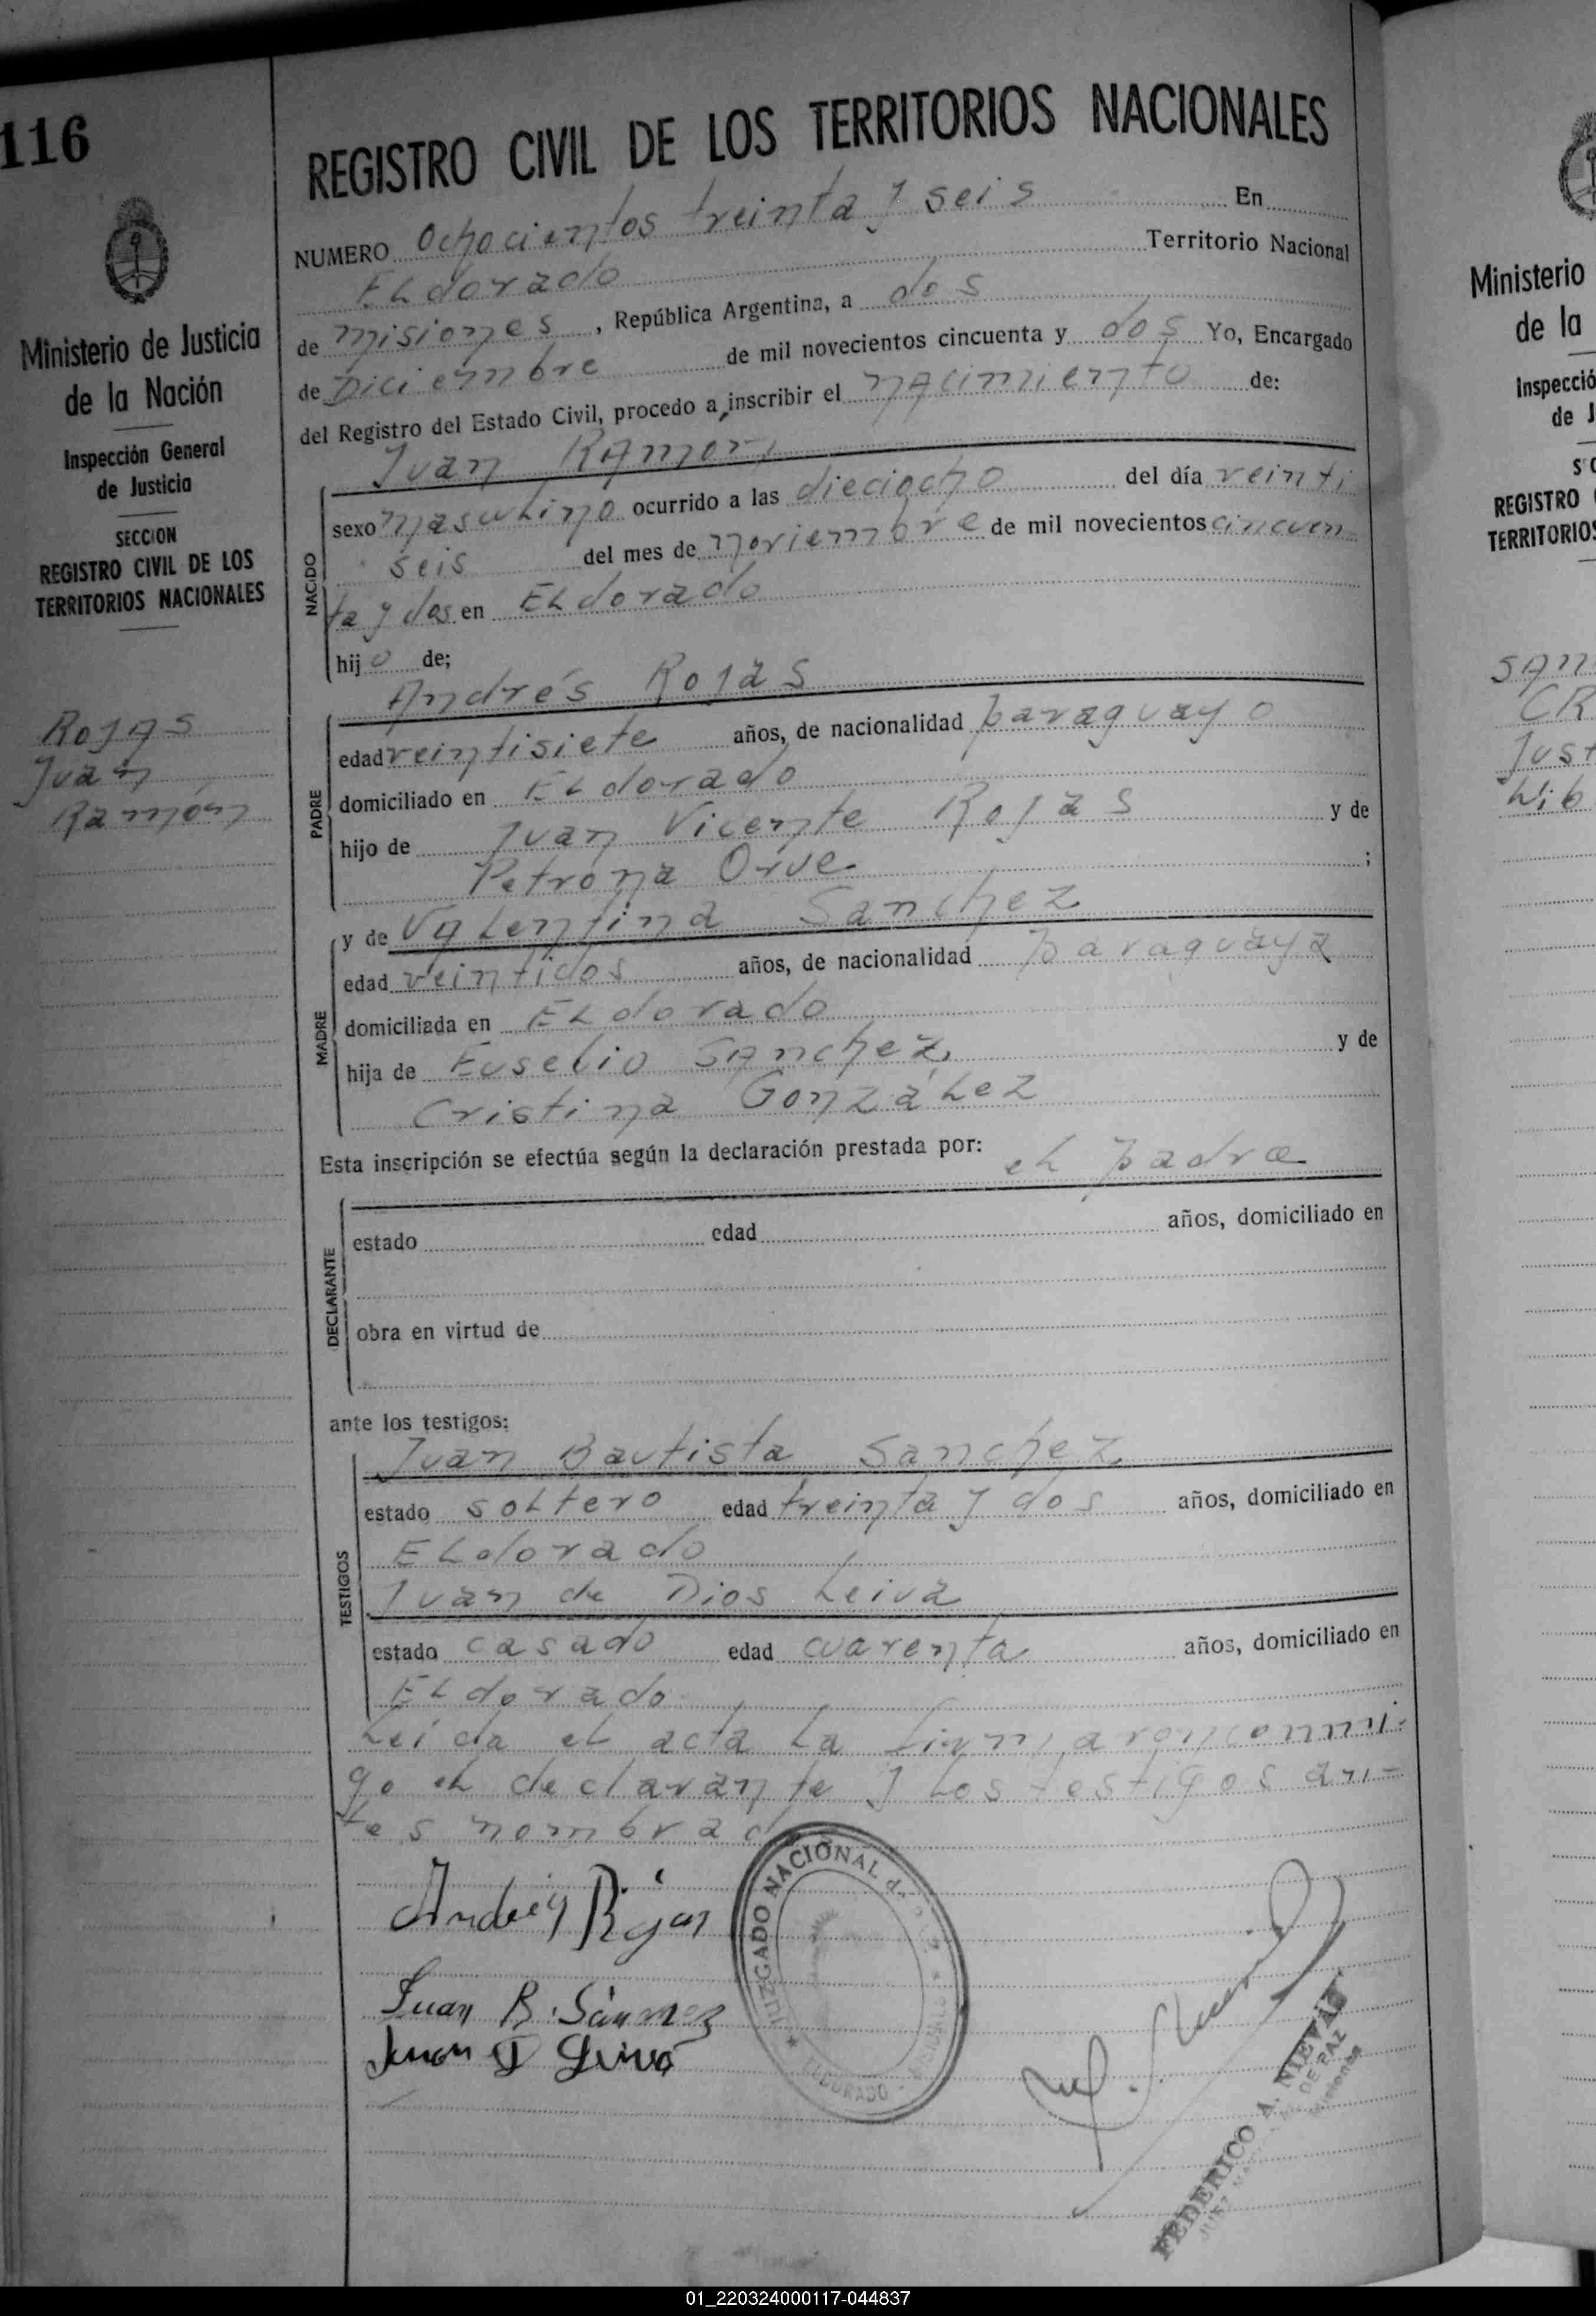 116
Ministerio de Justicia
de la Nación
Inspección General
de Justicia
SECCION
REGISTRO CIVIL DE LOS
TERRITORIOS NACIONALES
Rojas
Juan
Ramón
REGISTRO CIVIL DE LOS TERRITORIOS NACIONALES
NUMERO Ochocientos treinta y seis En
ELdorado Territorio Nacional
de misiones, República Argentina, a dos
de Diciembre de mil novecientos cincuenta y dos Yo, Encargado
del Registro del Estado Civil, procedo a inscribir el nacimiento de:
Juan Ramon
NACIDO
sexo masculino ocurrido a las dieciocho del día veinti
seis del mes de noviembre de mil novecientos cincuen
ta y dos en ELdorado
hijo de;
Andrés Rojas
PADRE
edad veintisiete años, de nacionalidad paraguayo
domiciliado en ELdorado
hijo de Juan Vicente Rojas y de
Petrona Orve ;
MADRE
y de Valentina Sanchez
edad veintidos años, de nacionalidad paraguaya
domiciliada en ELdorado
hija de Eusebio Sanchez y de
Cristina González
Esta inscripción se efectúa según la declaración prestada por: el padre
DECLARANTE
estado edad años, domiciliado en
obra en virtud de
ante los testigos:
TESTIGOS
Juan Bautista Sanchez
estado soltero edad treinta y dos años, domiciliado en
ELdorado
Juan de Dios Leiva
estado casado edad cuarenta años, domiciliado en
ELdorado
Leida el acta la firmaron conmi-
go el declarante y los testigos an-
tes nombrad
Andrés Rojas
Juan B. Sánchez
Juan D Leiva
JUZGADO NACIONAL de
ELDORADO - MISIONES
FEDERICO A. NIEVAS
JUEZ DE PAZ
Misiones
Ministerio
de la
Inspecció
de J
REGISTRO
TERRITORIOS
SAN
CR
Just
Lib
01_220324000117-044837